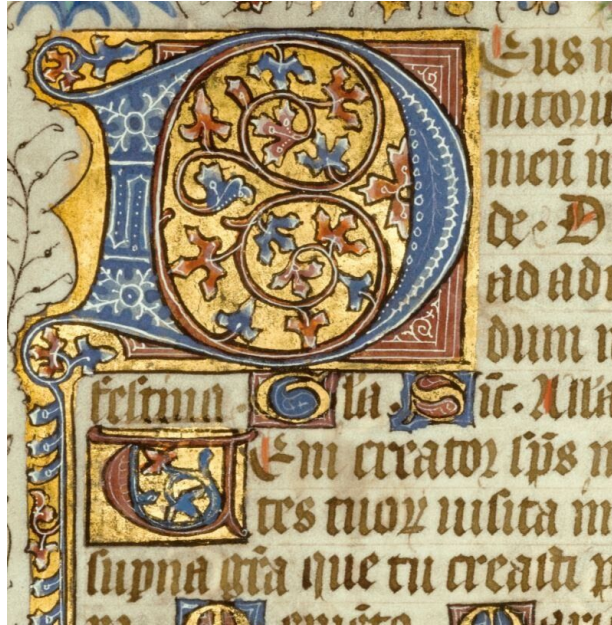 Deus
iutoriu
meū in
de. D
ad adi
dum
festina. Gla. Sic̄. Alla
Ueni creator sp̄s
tes tuoꝝ uisita m
supna gr̄a que tu creasti p